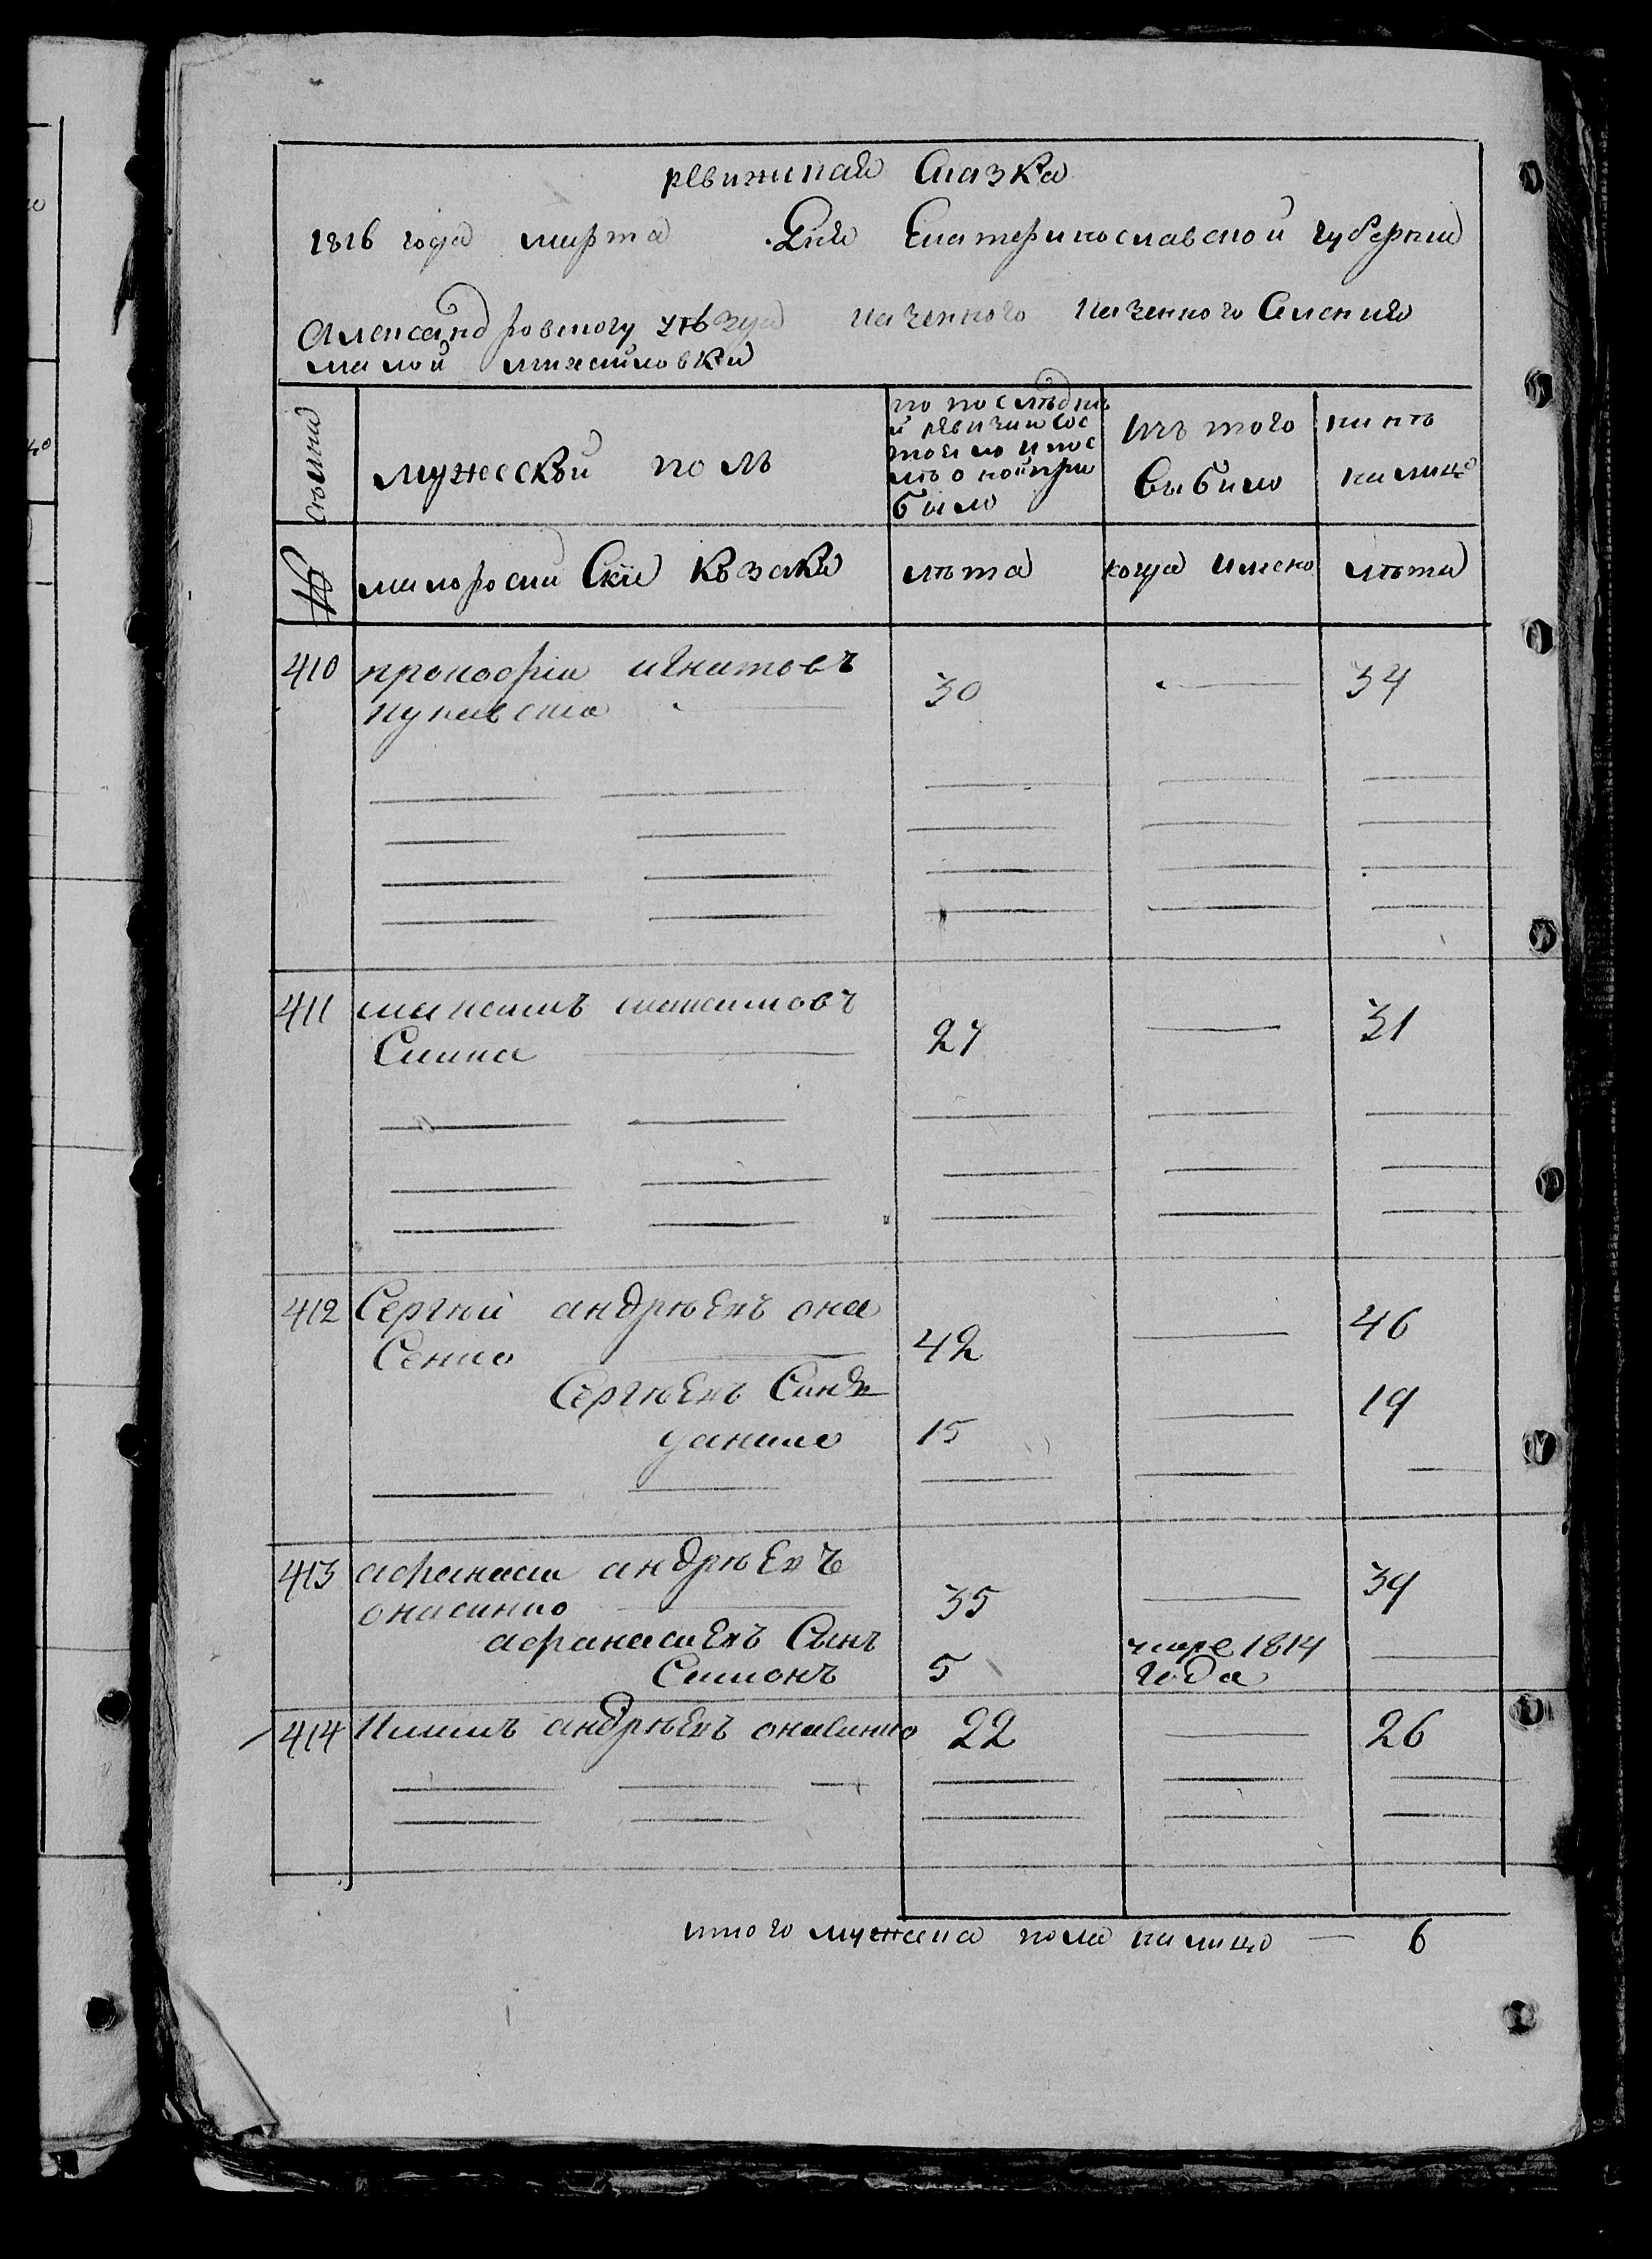 ревижская Сказка
1816 года марта Дня Екатеринославской губернии
Александровского уѣзда казенного казенного Селения
малой михайловки
семьи
мужеской полъ
по послѣдне
й ревизии сос
тояло и пос
лѣ оной при
было
изъ того
выбыло
ныне
на лицо
№
малоросий Скіе козаки
лѣта
когда имено
лѣта
410 прокофій игнатовъ
30 — 34
411 максимъ максимовъ
27 — 31
412 Сергѣй андрѣевъ она
Сенко 42 — 46
Сергѣевъ Синъ
данило 15 — 19
413 афанасии андрѣевъ
онасенко 35 — 39
афанасиевъ Сынъ
Симонъ 5
умре 1814
года —
414 андрѣевъ онасенко 22 — 26
итого мужска пола на лицо — 6